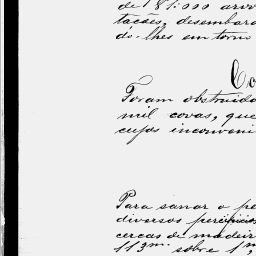 de 81:000 arvo
tacões, desembara
do-lhes em torno
Co
Foram obstruido
mil covas, que
cujos inconveni
Para sanar o pe
diversos
cercas de madeir
113m. sobre 1m,